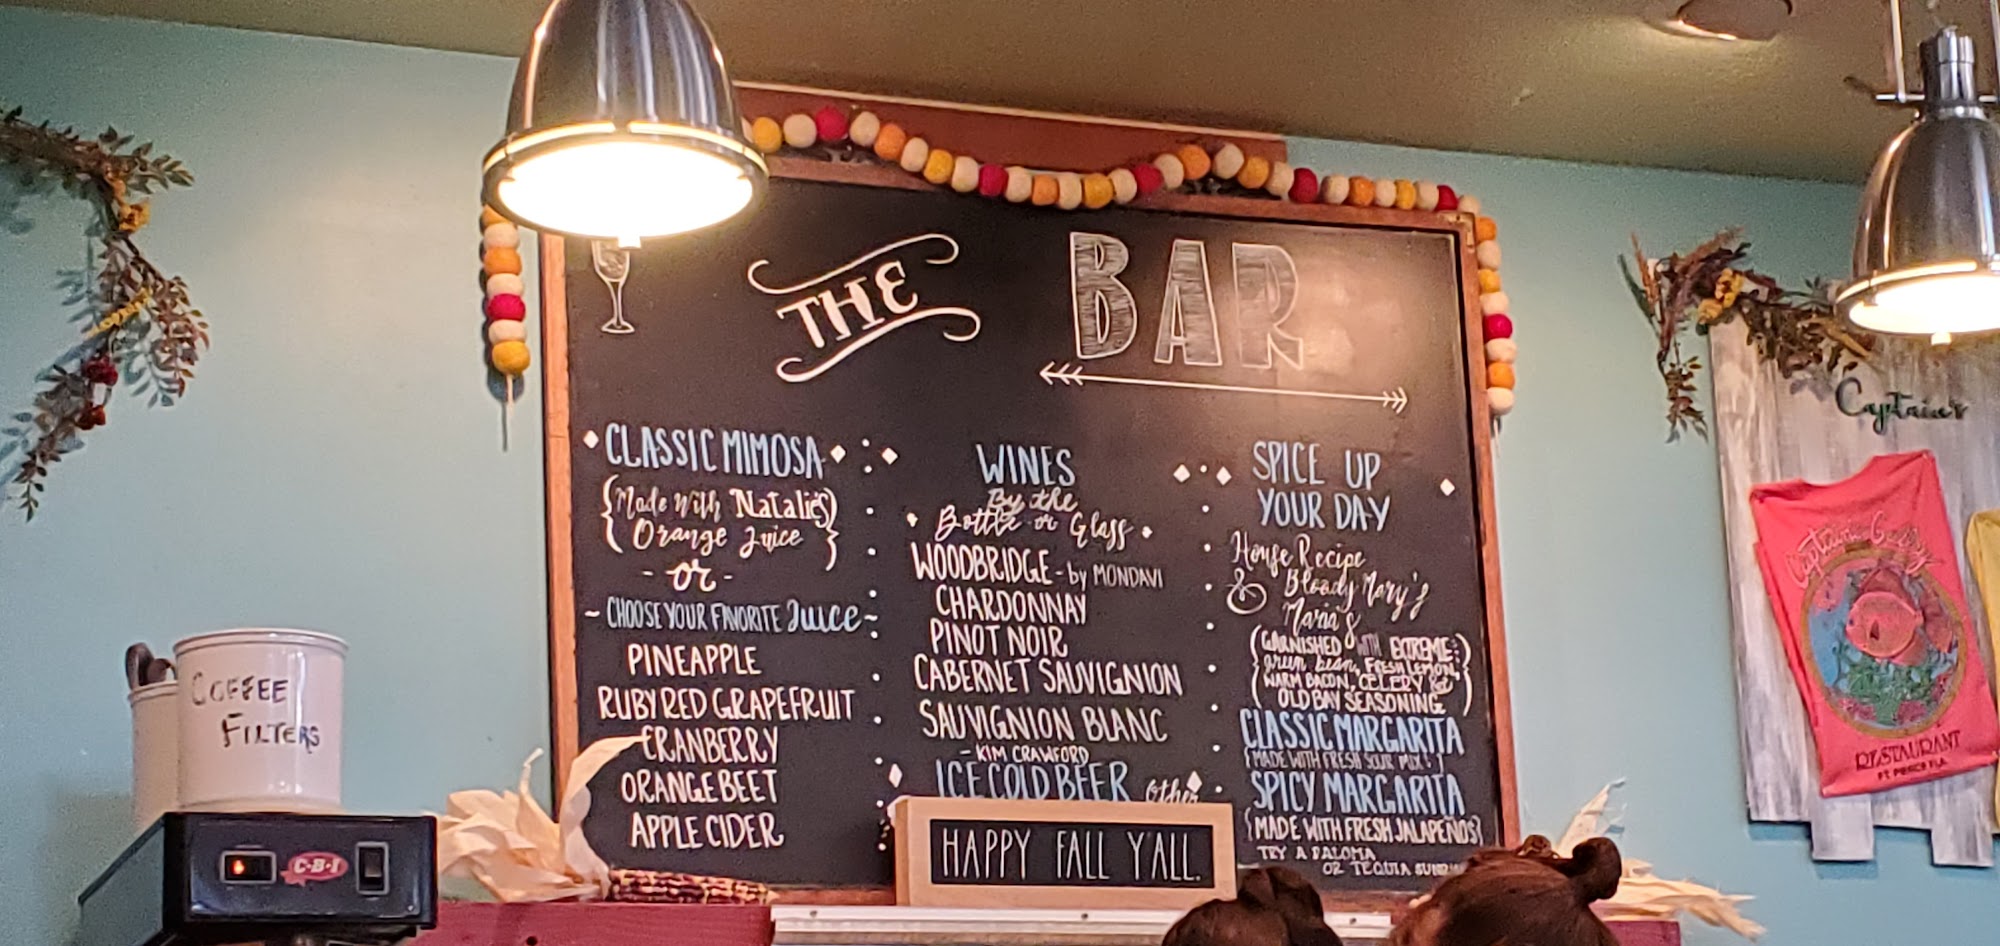 THE BAR
CLASSIC MIMOSA
{Made With Natalie's
Orange Juice}
- or -
~ CHOOSE YOUR FAVORITE Juice ~
PINEAPPLE
RUBY RED GRAPEFRUIT
CRANBERRY
ORANGE BEET
APPLE CIDER
WINES
By the
Bottle or Glass
WOODBRIDGE - by MONDAVI
CHARDONNAY
PINOT NOIR
CABERNET SAUVIGNION
SAUVIGNION BLANC
- KIM CRAWFORD
ICE COLD BEER other
HAPPY FALL Y'ALL.
SPICE UP
YOUR DAY
House Recipe
Bloody Mary's
&
Maria's
(GARNISHED WITH EXTREME:
green bean, FRESH LEMON,
WARM BACON, CELERY &
OLD BAY SEASONING)
CLASSIC MARGARITA
(MADE WITH FRESH SOUR MIX!)
SPICY MARGARITA
{MADE WITH FRESH JALAPEÑOS}
TRY A PALOMA
OR TEQUILA
COFFEE
FILTERS
C·B·I
Captain's
Captain's Galley
RESTAURANT
FT. PIERCE FLA.